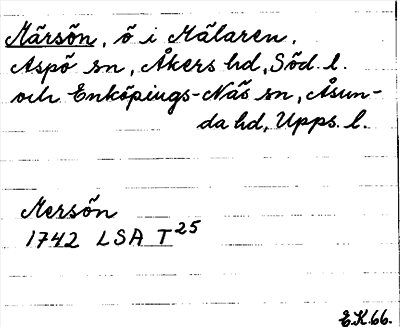 Märsön, ö i Mälaren.
Aspö sn, Åkers hd, Söd. l.
och Enköpings-Näs sn, Åsun-
da hd, Upps. l.
Mersön
1742 LSA T25
E.K.66.